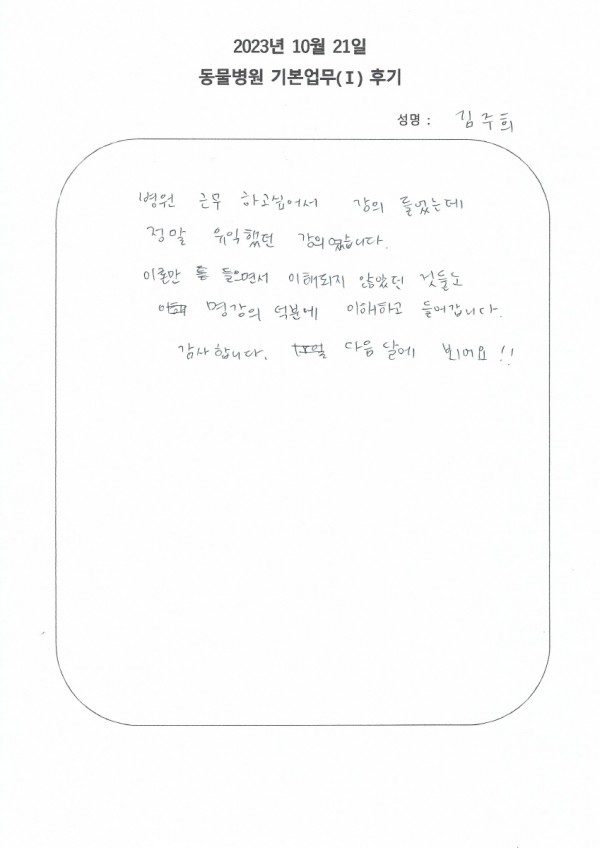 2023년 10월 21일
동물병원 기본업무(I) 후기
성명 : 김주희
병원 근무 하고싶어서 강의 들었는데
정말 유익했던 강의였습니다.
이론만 들으면서 이해되지 않았던 것들도
명강의 덕분에 이해하고 들어갑니다.
감사합니다. 다음 달에 뵈어요!!